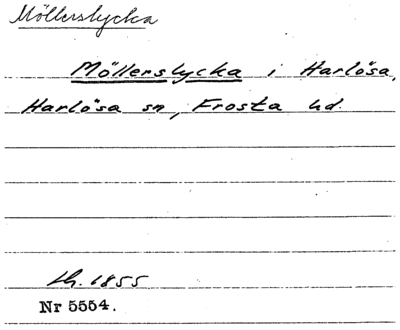 Möllerslycka
Möllerslycka i Harlösa,
Harlösa sn, Frosta hd.
1855
Nr 5554.